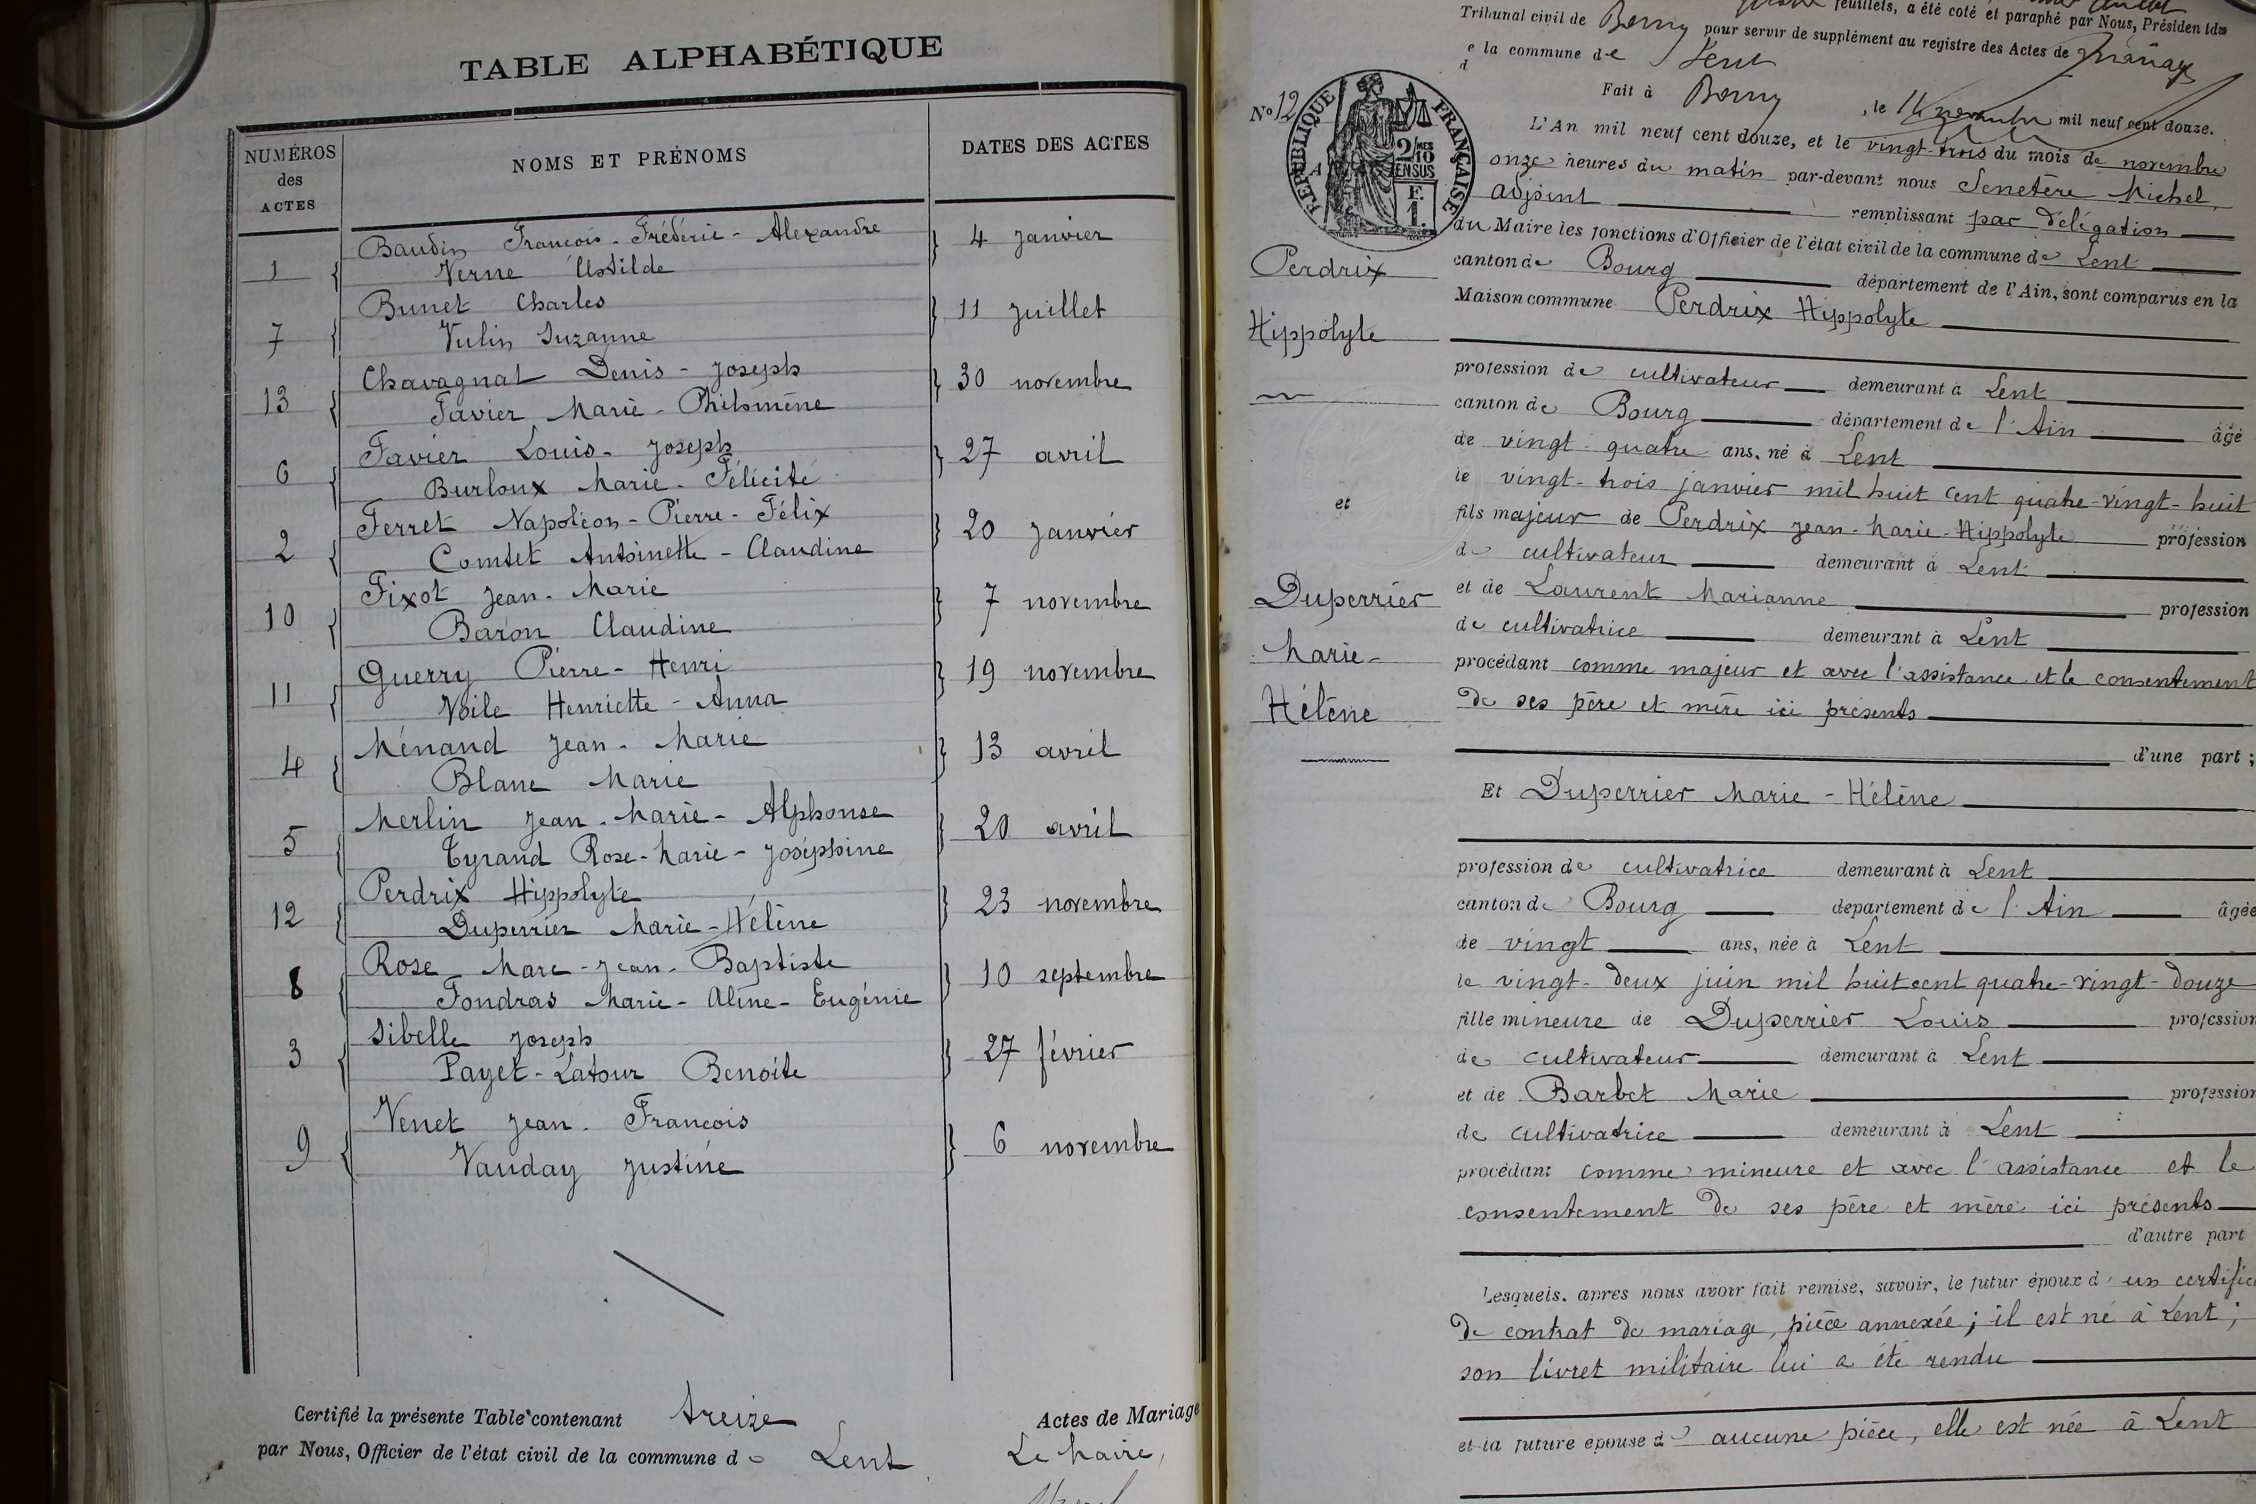 TABLE ALPHABÉTIQUE
NUMÉROS des ACTES
NOMS ET PRÉNOMS
DATES DES ACTES
1 Baudin François-Frédéric-Alexandre
Verne Clotilde
4 janvier
7 Bunet Charles
Vulin Suzanne
11 juillet
13 Chavagnat Denis-Joseph
Favier Marie-Philomène
30 novembre
6 Favier Louis-Joseph
Burloux Marie-Félicité
27 avril
2 Ferret Napoléon-Pierre-Félix
Comtet Antoinette-Claudine
20 janvier
10 Fixot Jean-Marie
Baron Claudine
7 novembre
11 Guerry Pierre-Henri
Noile Henriette-Anna
19 novembre
4 Ménand Jean-Marie
Blanc Marie
13 avril
5 Merlin Jean-Marie-Alphonse
Tyrand Rose-Marie-Joséphine
20 avril
12 Perdrix Hippolyte
Duperrier Marie-Hélène
23 novembre
8 Rose Marc-Jean-Baptiste
Fondras Marie-Aline-Eugénie
10 septembre
3 Sibelle Joseph
Payet-Latour Benoite
27 février
9 Venet Jean-François
Vauday Justine
6 novembre
Certifié la présente Table contenant treize Actes de Mariage
par Nous, Officier de l'état civil de la commune de Lent
Le Maire,
feuillets, a été coté et paraphé par Nous, Président du
Tribunal civil de Bourg pour servir de supplément au registre des Actes de Mariage
de la commune de Lent
Fait à Bourg, le 14 novembre mil neuf cent douze.
N° 12
RÉPUBLIQUE FRANÇAISE
2/10MES
EN SUS
F.
1.
Perdrix
Hippolyte
et
Duperrier
Marie-
Hélène
L'An mil neuf cent douze, et le vingt-trois du mois de novembre
onze heures du matin par-devant nous Senetère Michel,
adjoint remplissant par délégation
du Maire les fonctions d'Officier de l'état civil de la commune de Lent
canton de Bourg département de l'Ain, sont comparus en la
Maison commune Perdrix Hippolyte
profession de cultivateur demeurant à Lent
canton de Bourg département de l'Ain âgé
de vingt-quatre ans, né à Lent
le vingt-trois janvier mil huit cent quatre-vingt-huit
fils majeur de Perdrix Jean-Marie-Hippolyte profession
de cultivateur demeurant à Lent
et de Laurent Marianne profession
de cultivatrice demeurant à Lent
procédant comme majeur et avec l'assistance et le consentement
de ses père et mère ici présents
d'une part;
Et Duperrier Marie-Hélène
profession de cultivatrice demeurant à Lent
canton de Bourg département de l'Ain âgée
de vingt ans, née à Lent
le vingt-deux juin mil huit cent quatre-vingt-douze
fille mineure de Duperrier Louis profession
de cultivateur demeurant à Lent
et de Barbet Marie profession
de cultivatrice demeurant à Lent
procédant comme mineure et avec l'assistance et le
consentement de ses père et mère ici présents
d'autre part
Lesquels, après nous avoir fait remise, savoir, le futur époux d'un certific
de contrat de mariage, pièce annexée; il est né à Lent;
son livret militaire lui a été rendu
et la future épouse d' aucune pièce, elle est née à Lent